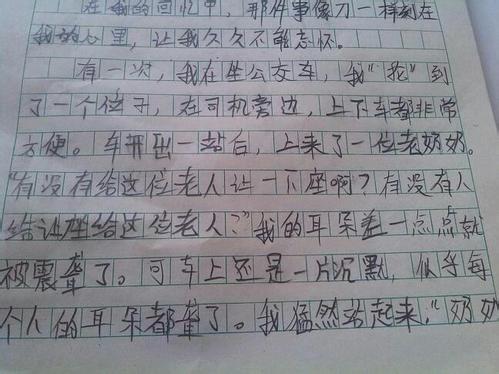 在我的回忆中，那件事像刀一样刻在
我的心里，让我久久不能忘怀。
有一次，我在坐公交车，我“抢”到
了一个位子，在司机旁边，上下车都非常
方便。车开出一站后，上来了一位老奶奶。
“有没有给这位老人让一下座啊？有没有人
给让座给这位老人？”我的耳朵差一点点就
被震聋了。可车上还是一片沉默，似乎每
个人的耳朵都聋了。我猛然站起来，“奶奶